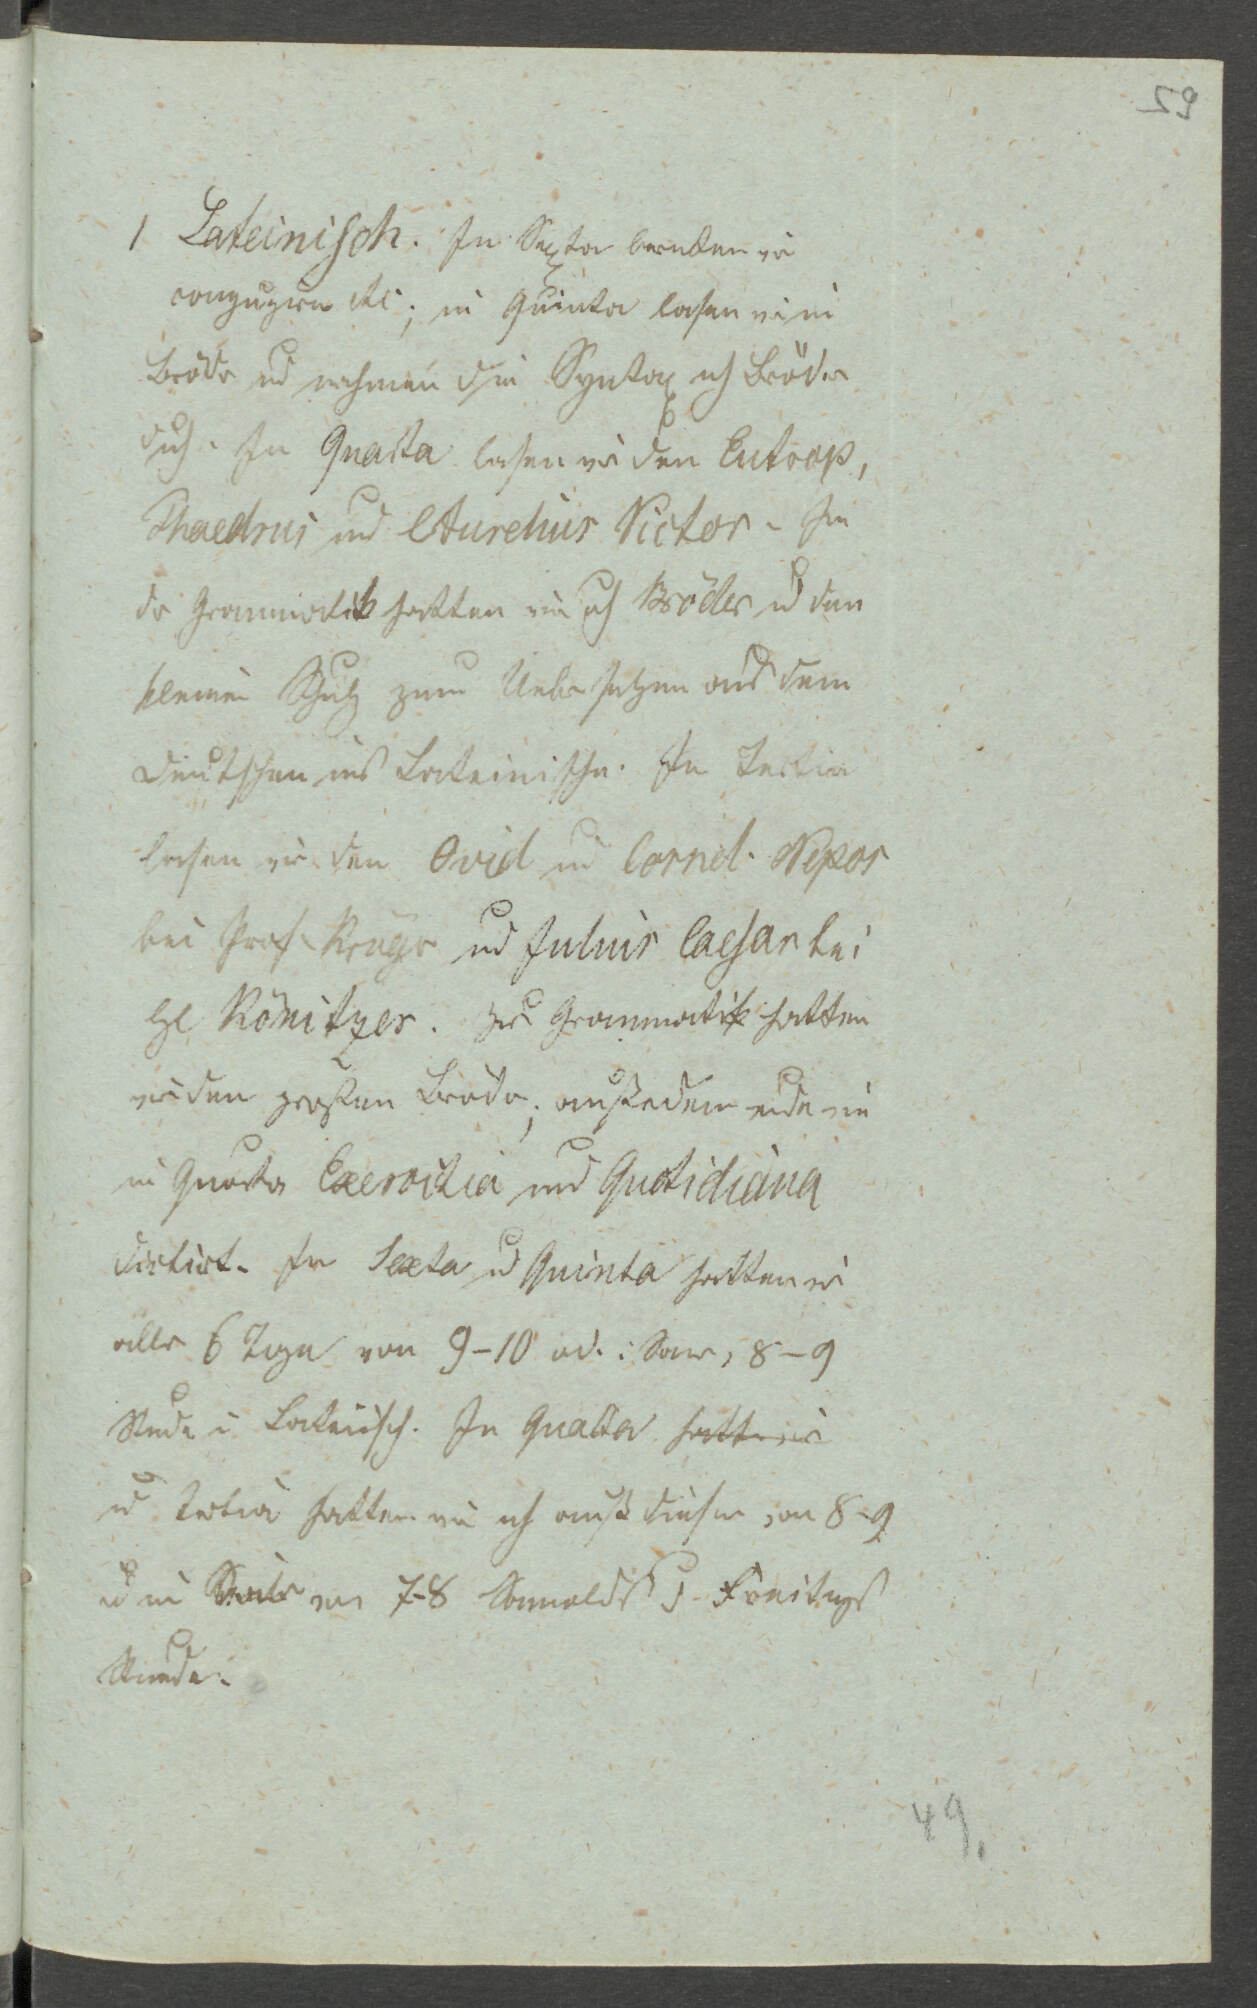 59
1 Lateinisch. In Sexta lernten wir
conjugiren etc; in Quinta lasen wir im
Bröder und nahmen den Syntax nach Bröder
durch. In Quarta lasen wir den Eutrop,
Phaedrus und Aurelius Victor. In
der Grammatik hatten wir auch Bröder und den
kleinen Schulz zum Uebersetzen aus dem
Deutschen ins Lateinische. In Tertia
lasen wir den Ovid und Cornel. Nepos
bei Prof. Krüger und Julius Caesar bei
H Könitzer. Zur Grammatik hatten
wir den großen Bröder; außerdem wurden
in Quarta Exercitia und Quotidiana
dictirt. In Sexta und Quinta hatten wir
alle 6 Tage von 9-10 od. i. Som. 8-9
Stunde i Lateinisch. In Quarta hatten wir
u Tertia hatten wir auch außer diesen von 8-9
u im 7-8 Freitags
Stunde.
49.